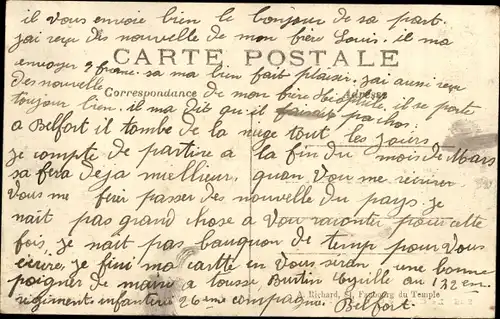 il vous envoie bien le bonjour de sa part.
j'ai reçu des nouvelle de mon frère Louis. il ma
CARTE POSTALE
envoyer 2 franc. sa ma bien fait plaisir. j'ai aussi reçu
des nouvelle de mon frère Théophile, il se porte
Correspondance Adresse
toujour bien. il ma dit qu'il faisait pachos:
a Belfort il tombe de la nuge tout les jours
je compte de partire a la fin du mois de Mars
sa fera deja miellieur, quan vous me
Vous me ferer passer des nouvelle du pays. je
nait pas grand chose a vou raconter pour cette
fois, je nait pas bauquon de temp pour vous
écrire, je fini ma cartte en vous séran une bonne
poigner de main a tousse, Burtin Cyrille au 132 em
A. Richard, Faubourg du Temple
régiment infanterie 26 eme compagnie. Belfort.